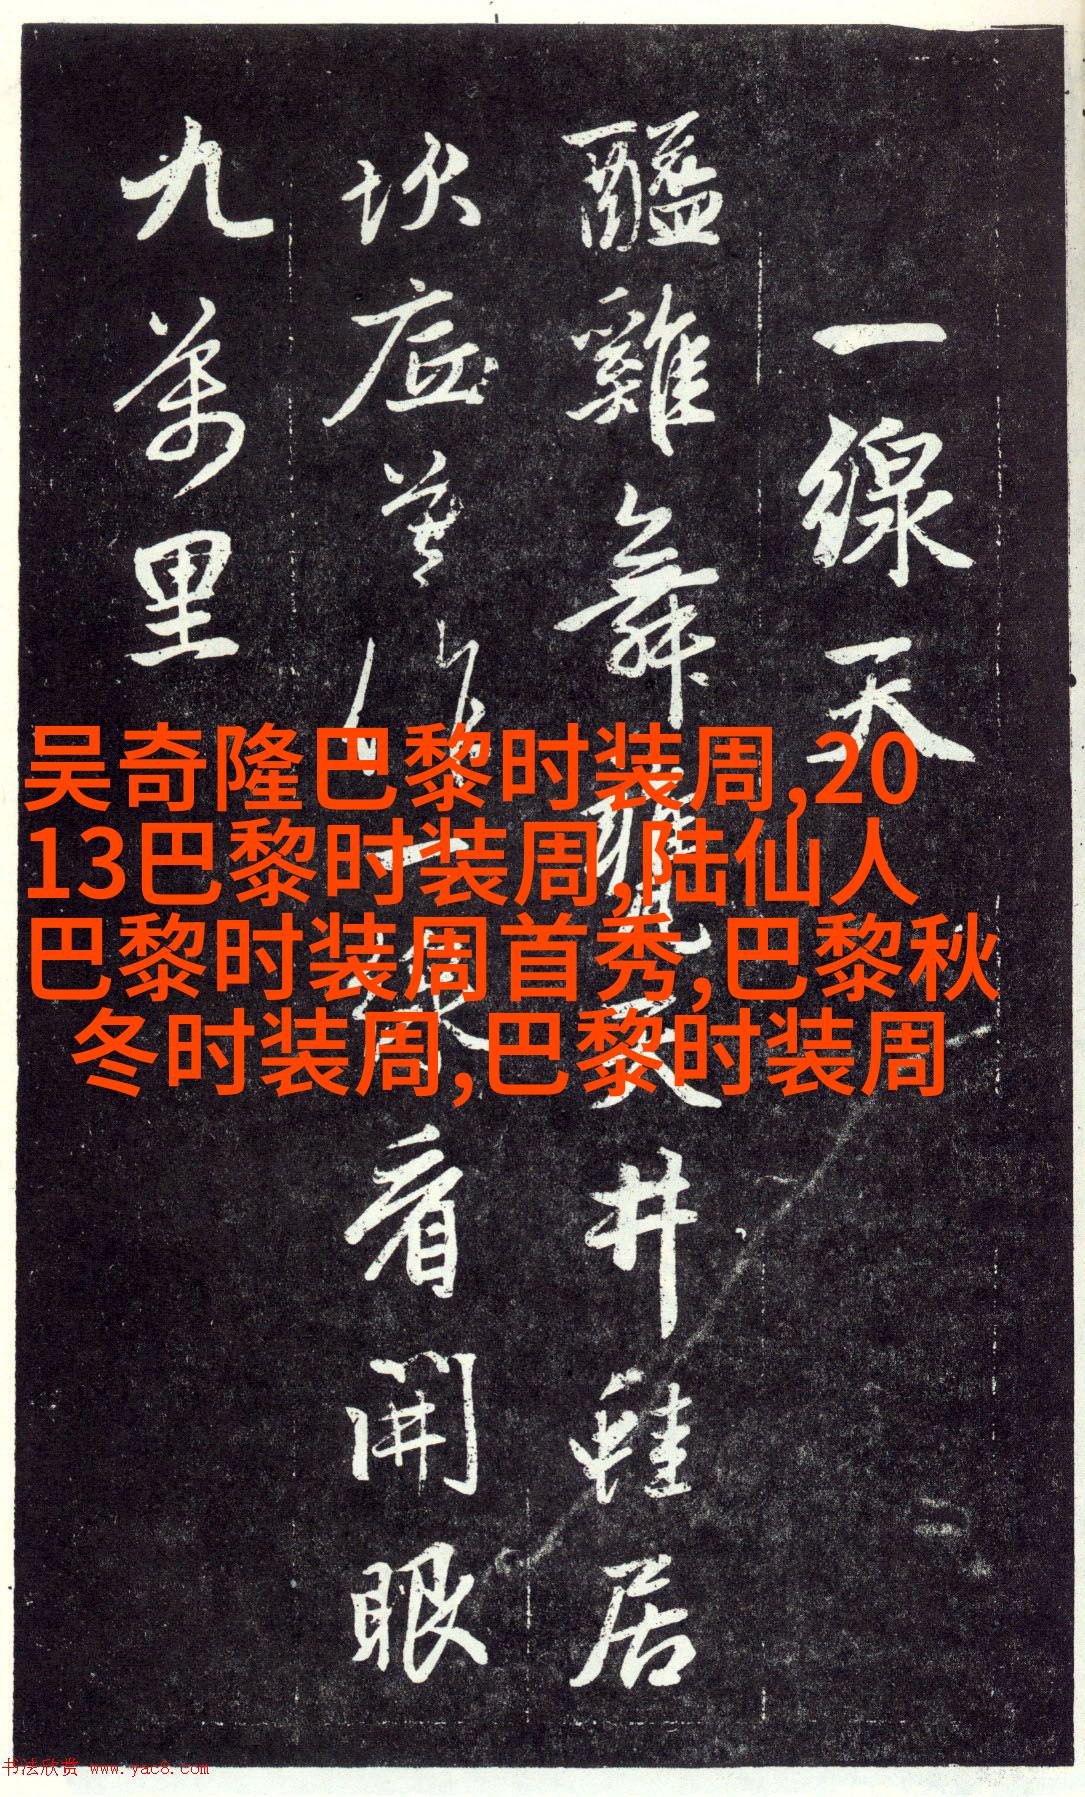 一線天
醯雞舞甕天井蛙居
坎底莫作一線看開眼
九萬里
吴奇隆巴黎时装周,20
13巴黎时装周,陆仙人
巴黎时装周首秀,巴黎秋
冬时装周,巴黎时装周
书法欣赏 www.yac8.com